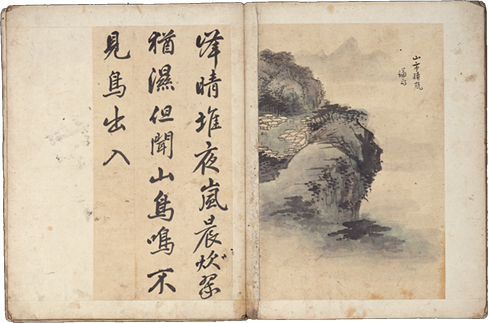 山市晴嵐
謙齋
峰晴堆夜嵐晨炊翠
猶濕但聞山鳥鳴不
見鳥出入